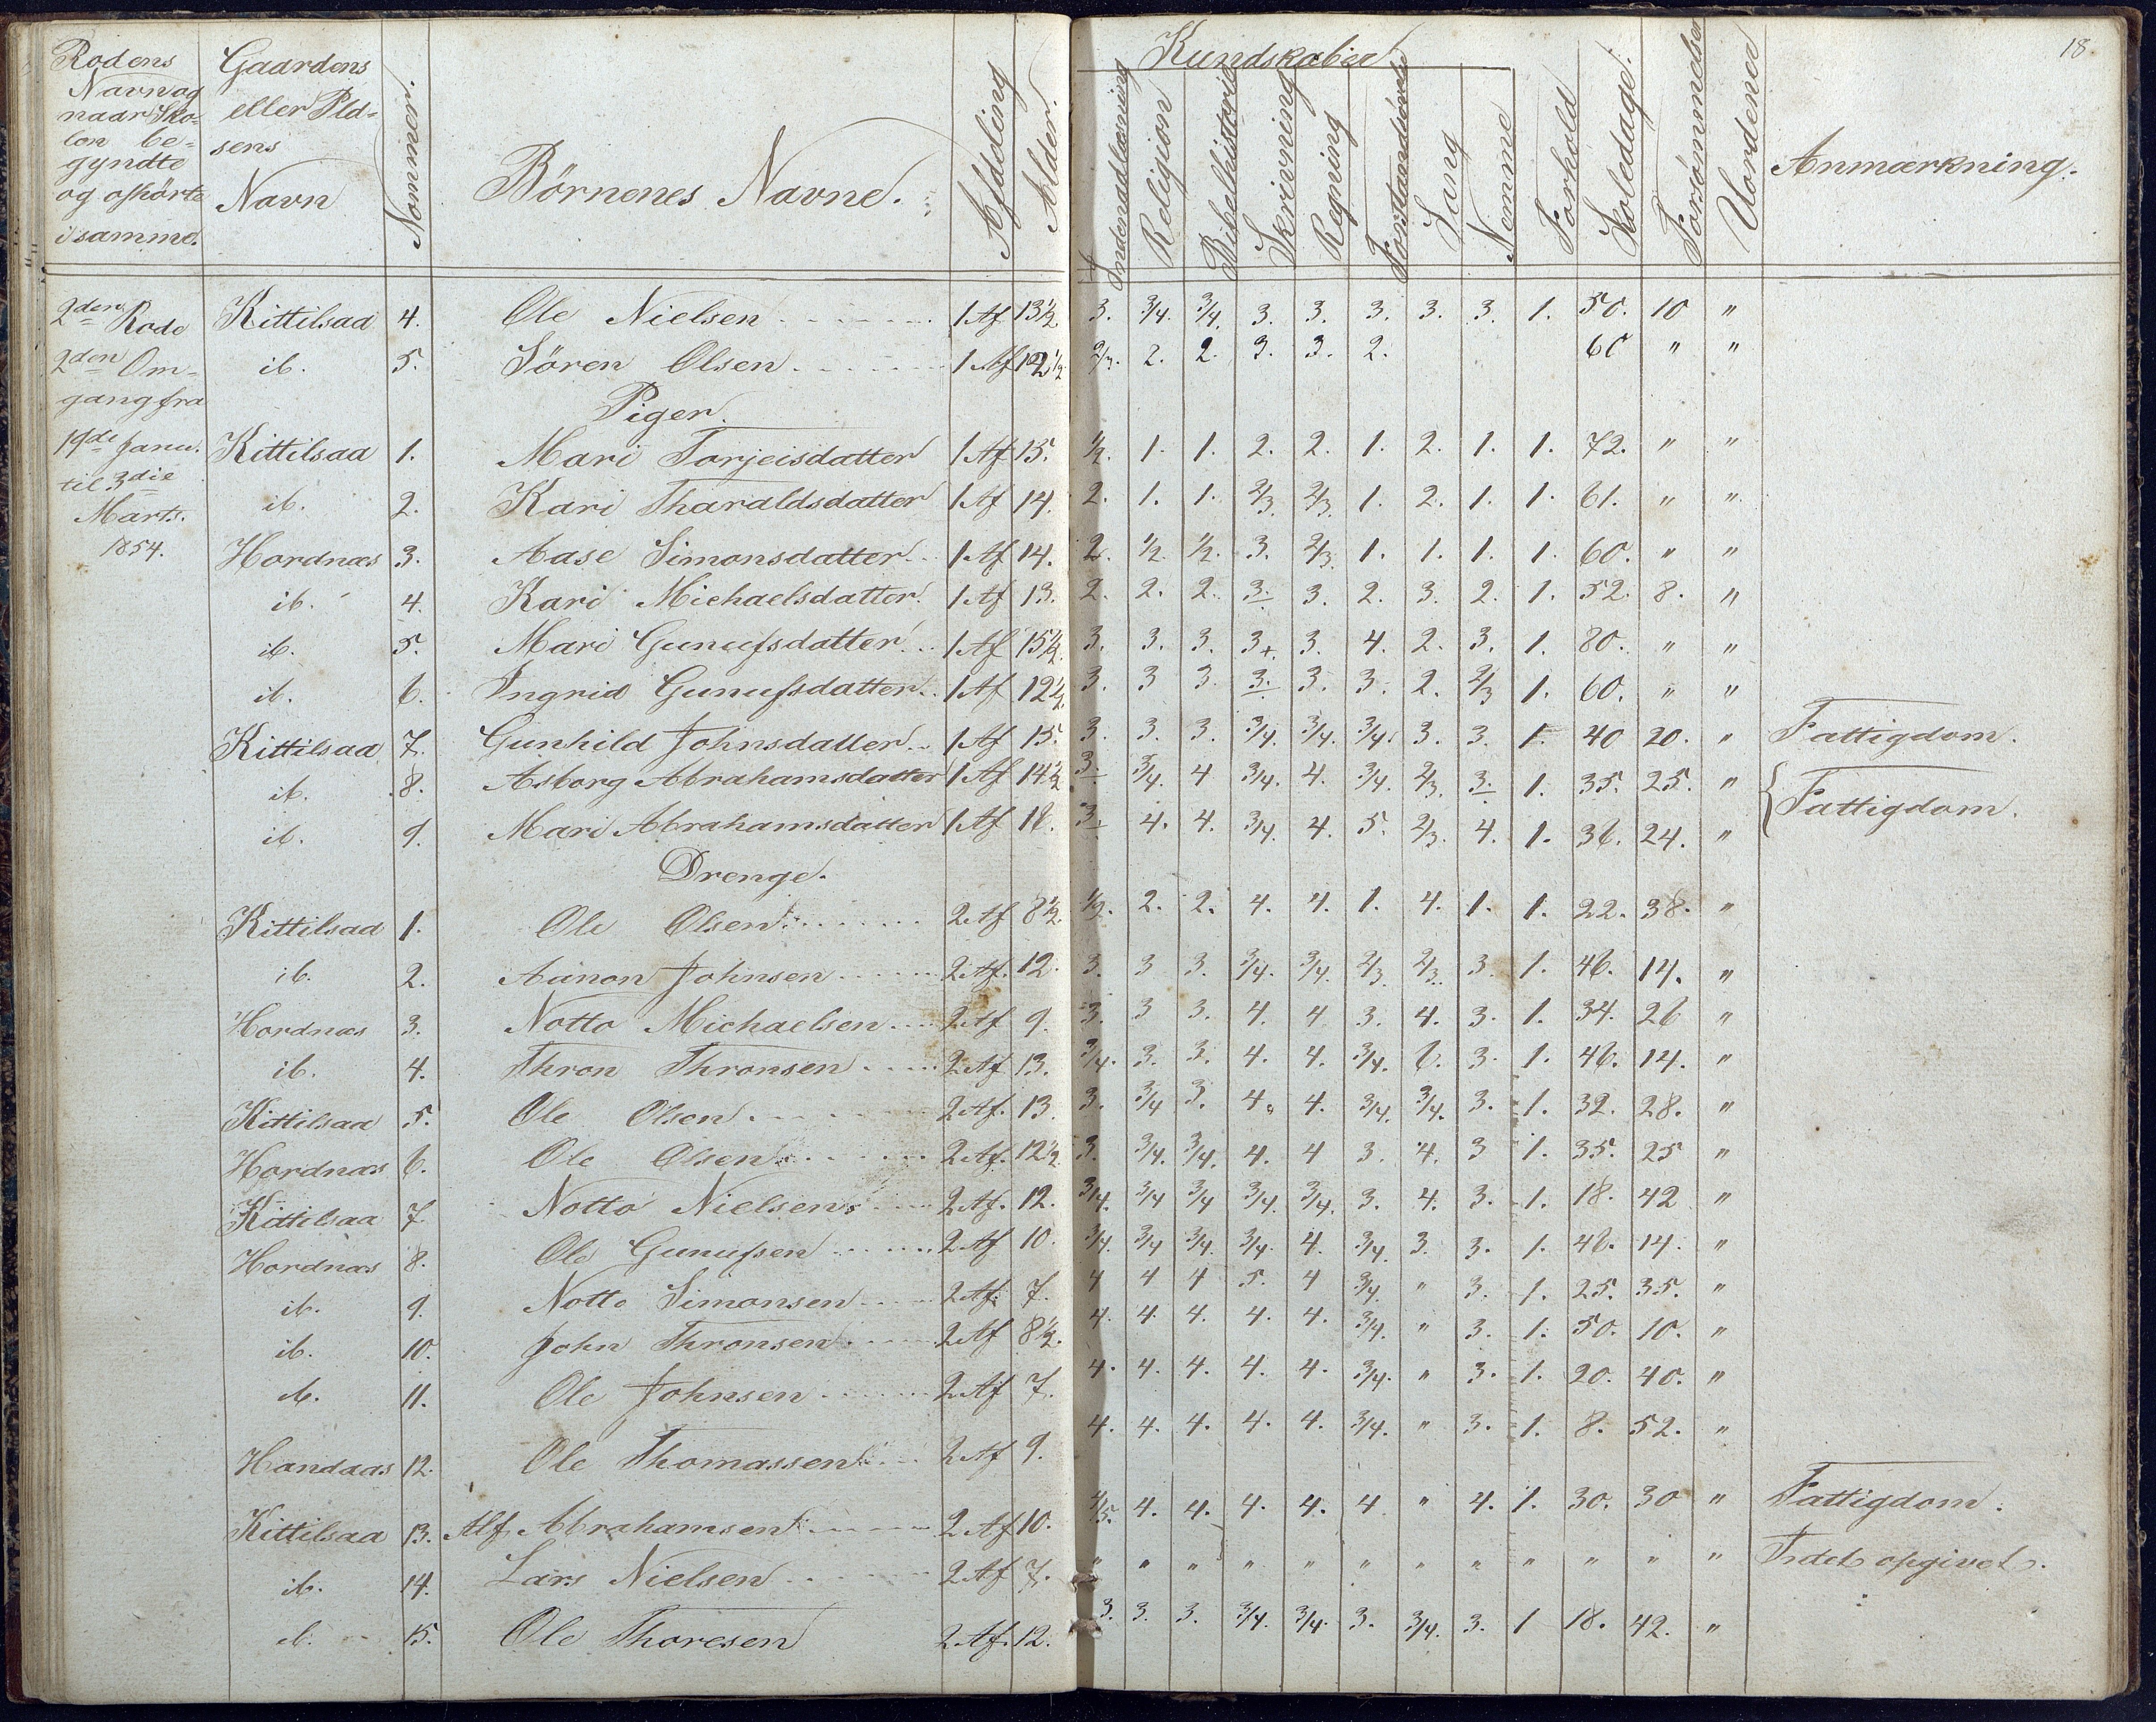 18
Rodens Navn og naar Sko= len be= gyndte og ophörte i samme.
Gaardens eller Plad= sens Navn
Nommer.
Börnenes Navne.
Afdeling
Alder.
Kundskaber
Indenadlæsning
Religion
Bibelhistorie
Skrivning
Regning
Forstandsövelse
Sang
Nemme
Forhold
Skoledage.
Forsömmelser
Uordener
Anmærkning.
2den Rode
2den Om=
gang fra
19de Janu.
til 3die
Marts.
1854.
Kittilsaa 4. Ole Nielsen 1 Af 13½ 3. 3/4. 3/4. 3. 3. 3. 3. 3. 1. 50. 10 "
ib. 5. Sören Olsen 1 Af 12½ 2/3. 2. 2. 3. 3. 2. 60 " "
Piger.
Kittilsaa 1. Mari Torjeisdatter 1 Af 15. 1/2. 1. 1. 2. 2. 1. 2. 1. 1. 72. " "
ib. 2. Kari Tharaldsdatter 1 Af 14. 2. 1. 1. 2/3. 2/3. 1. 2. 1. 1. 61. " "
Hordnæs 3. Aase Simonsdatter 1 Af 14. 2. 1/2. 1/2. 3. 2/3. 1. 1. 1. 1. 60. " "
ib. 4. Kari Michaelsdatter. 1 Af 13. 2. 2. 2. 3. 3. 2. 3. 2. 1. 52. 8. "
ib. 5. Mari Gunufsdatter 1 Af 15½. 3. 3. 3. 3+. 3. 4. 2. 3. 1. 80. " "
ib. 6. Ingrid Gunufsdatter 1 Af 12½ 3. 3 3. 3. 3. 3. 2. 2/3 1. 60. " "
Kittilsaa 7. Gunhild Johnsdatter 1 Af 15. 3. 3. 3. 3/4. 3/4. 3/4. 3. 3. 1. 40 20. " Fattigdom.
ib. 8. Asborg Abrahamsdatter 1 Af 14½ 3. 3/4. 4 3/4. 4. 3/4. 2/3. 3. 1. 35. 25. "
ib. 9. Mari Abrahamsdatter 1 Af 18. 3. 4. 4. 3/4. 4. 5. 2/3. 4. 1. 36. 24. " Fattigdom.
Drenge.
Kittilsaa 1. Ole Olsen 2 Af 8½. 1/2. 2. 2. 4. 4. 1. 4. 1. 1. 22. 38. "
ib. 2. Aanon Johnsen 2 Af. 12. 3. 3 3. 3/4. 3/4. 2/3. 2/3. 3. 1. 46. 14. "
Hordnæs 3. Notto Michaelsen 2 Af 9. 3. 3 3. 4. 4 3. 4. 3. 1. 34. 26 "
ib. 4. Thron Thronsen 2 Af 13. 3/4. 3. 3. 4. 4. 3/4. 6. 3. 1. 46. 14. "
Kittilsaa 5. Ole Olsen 2 Af. 13. 3. 3/4 3. 4. 4. 3/4. 3/4. 3. 1. 32. 28. "
Hordnæs 6. Ole Olsen 2 Af. 12½ 3. 3/4. 3/4. 4. 4 3. 4. 3 1. 35. 25 "
Kittilsaa 7. Notto Nielsen 2 Af. 12. 3/4. 3/4 3/4 3/4. 3/4. 3. 4. 3. 1. 18. 42 "
Hordnæs 8. Ole Gunufsen 2 Af 10. 3/4. 3/4 3/4. 3/4. 4. 3/4. 3. 3. 1. 46. 14. "
ib. 9. Notto Simonsen 2 Af. 7. 4 4 4 5. 4 3/4. " 3. 1. 25. 35. "
ib. 10. John Thronsen 2 Af 8½. 4. 4. 4. 4. 4. 3/4. " 3. 1. 50. 10. "
ib. 11. Ole Johnsen 2 Af 7. 4. 4. 4. 4. 4. 3/4. " 3. 1. 20. 40. "
Handaas 12. Ole Thomassen 2 Af 9. 4. 4. 4. 4. 4. 3/4. " 3. 1. 8. 52. "
Kittilsaa 13. Alf Abrahamsen 2 Af 10. 4/5. 4. 4. 4. 4. 4 " 4. 1. 30. 30 " Fattigdom.
ib. 14. Lars Nielsen 2 Af 7. " " " " " " " " " " " " Intet opgivet.
ib. 15. Ole Thoresen 2 Af. 12. 3. 3. 3. 3/4. 3/4. 3. 3/4. 3. 1 18. 42. "